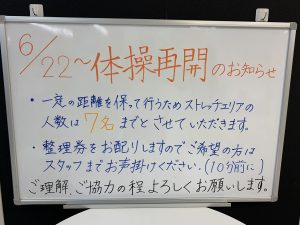 6/22～体操再開のお知らせ
・一定の距離を保って行うためストレッチエリアの
人数は7名までとさせていただきます。
・整理券をお配りしますのでご希望の方は
スタッフまでお声掛けください。(10分前に)
ご理解、ご協力の程、よろしくお願いします。